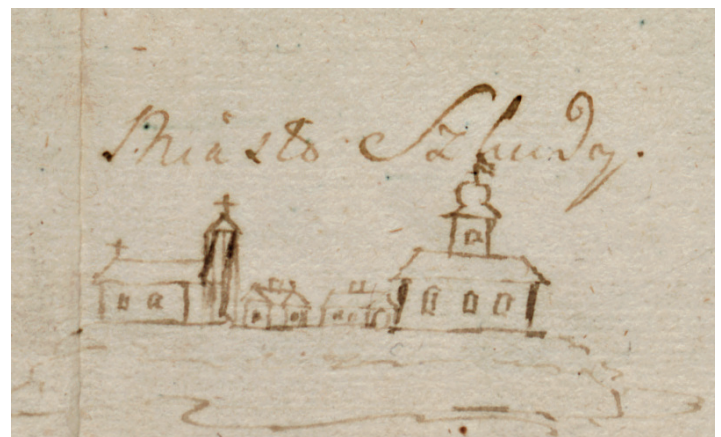 Miasto Szkudy.